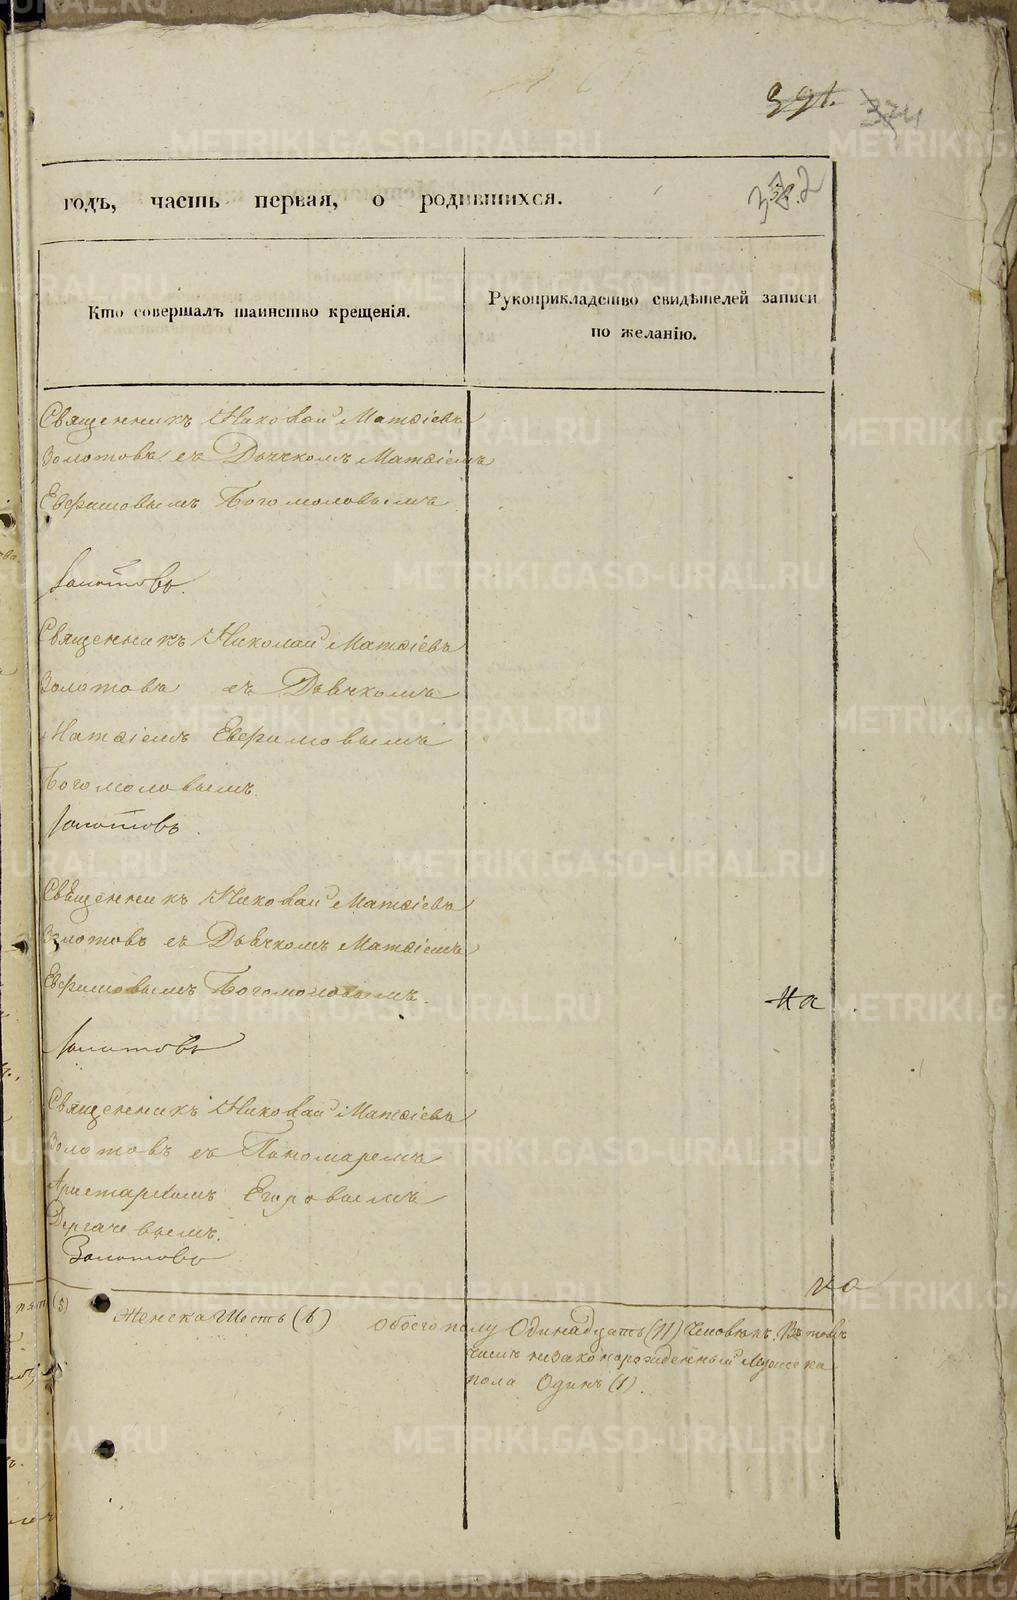 391.
374
382
годъ, часть первая, о родившихся.
Кто совершалъ таинство крещенія.
Рукоприкладство свидѣтелей записи
по желанію.
Священникъ Николай Матѳіевъ
Золотовъ съ Дьячкомъ Матѳіемъ
Евфимовымъ Богомоловымъ
Золотовъ.
Священникъ Николай Матѳіевъ
Золотовъ съ Дьячкомъ
Матѳіемъ Евфимовымъ
Богомоловымъ.
Золотовъ.
Священникъ Николай Матѳіевъ
Золотовъ съ Дьячкомъ Матѳіемъ
Евфимовымъ Богомоловымъ.
на
Золотовъ
Священникъ Николай Матѳіевъ
Золотовъ съ Пономаремъ
Аристархомъ Егоровымъ
Дергачевымъ.
Золотовъ
на
Женска Шесть (6) Обоего полу Одинадцать (11) Человѣкъ. Въ томъ
числѣ незаконорожденный Мужеска
пола Одинъ (1).
METRIKI.GASO-URAL.RU